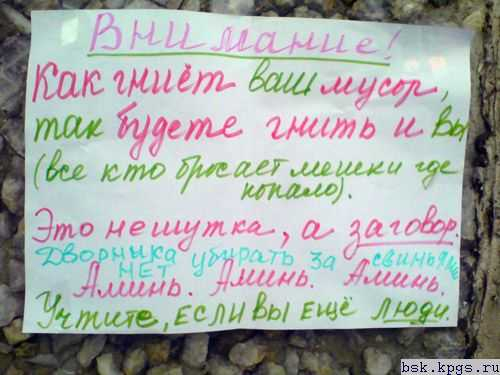 Внимание!
Как гниёт ваш мусор,
так будете гнить и вы
(все кто бросает мешки где
попало).
Это не шутка, а заговор.
Дворныка убирать за свиньями
НЕТ
Аминь. Аминь. Аминь.
Учтите, если вы ещё люди.
bsk.kpgs.ru